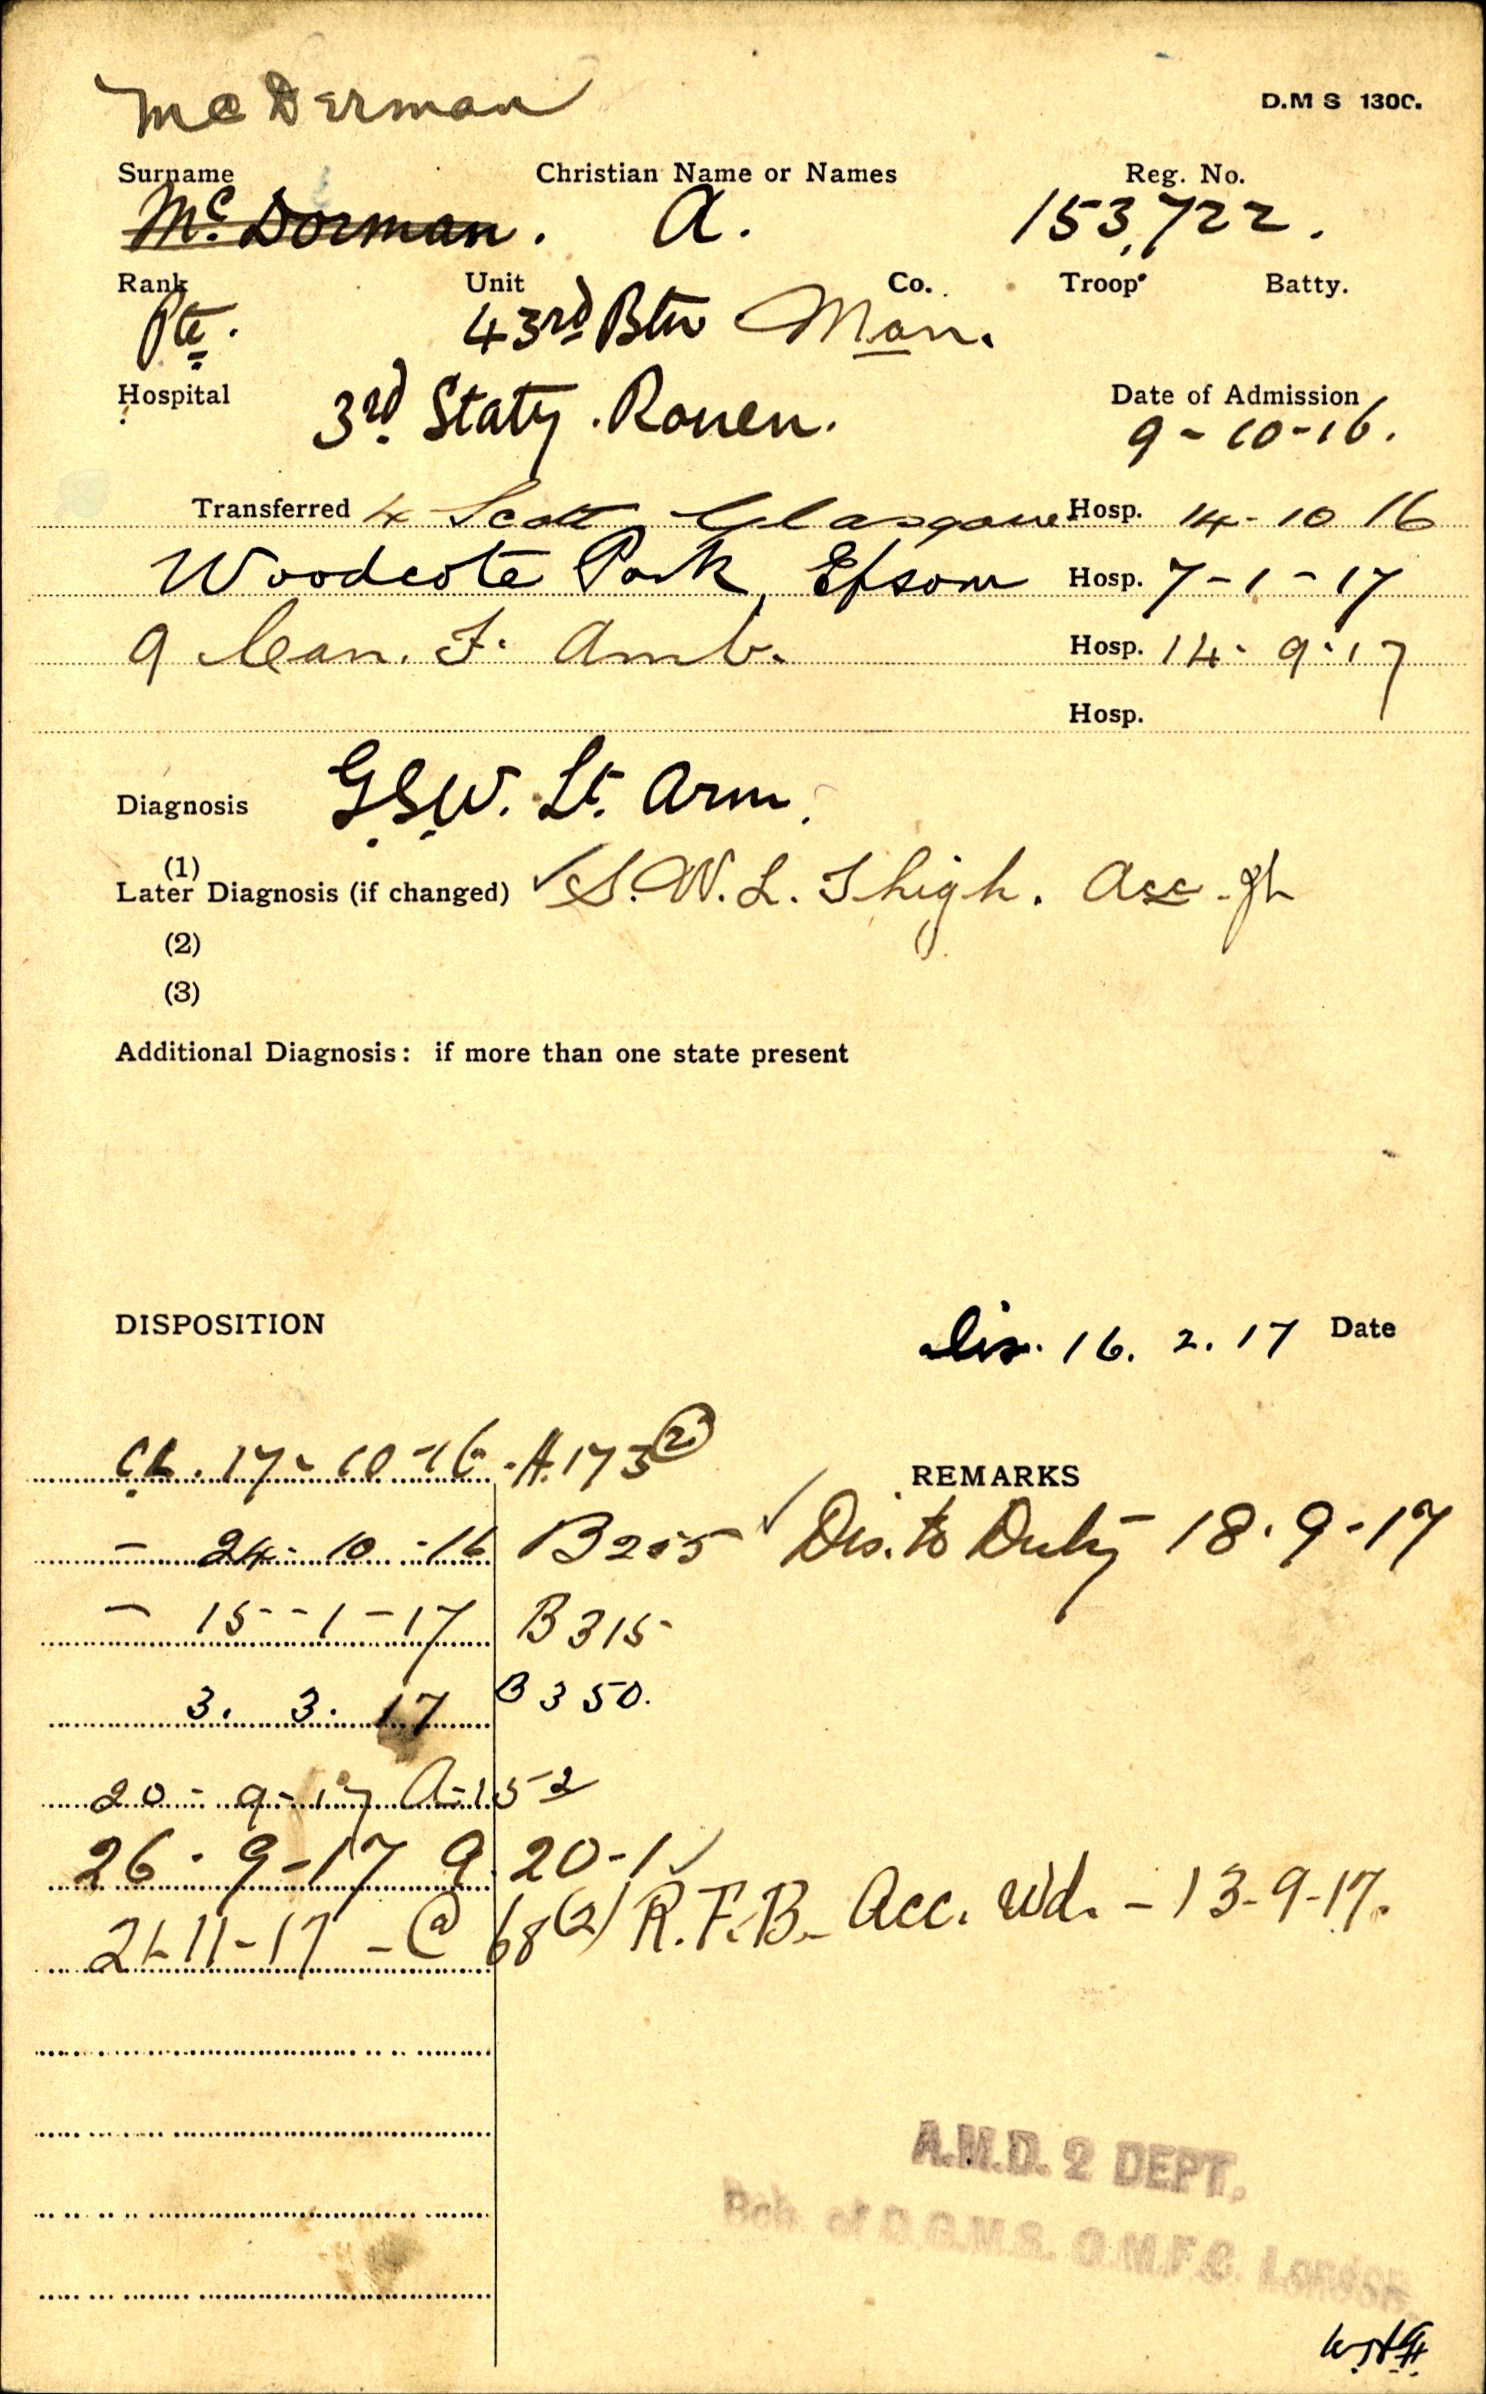 McDerman
D.M S 1300.
Surname Christian Name or Names Reg. No.
Mc. Dorman. A. 153,722.
Rank Unit Co. Troop Batty.
Pte. 43rd Btn Man.
Hospital 3rd Staty. Rouen. Date of Admission
9-10-16.
Transferred 4 Scott Glasgow Hosp. 14-10 16
Woodcote Park, Epsom Hosp. 7-1-17
9 Can. F. Amb. Hosp. 14-9-17
Hosp.
Diagnosis G.S.W. Lt. Arm.
(1)
Later Diagnosis (if changed) ✓ S.W.L. Thigh. Acc.
(2)
(3)
Additional Diagnosis: if more than one state present
DISPOSITION Dis. 16. 2. 17 Date
CL. 17-10-16 - A.173 (2)
REMARKS
- 24-10-16 B205 ✓ Dis. to Duty 18-9-17
- 15-1-17 B315
3. 3. 17 B350.
20-9-17 A-152
26-9-17 a 20-1 ✓
21-11-17 - @ 68(2) R.F.B. Acc. Wd. - 13-9-17.
A.M.D. 2 DEPT.
of D.G.M.S. O.M.F.C. London